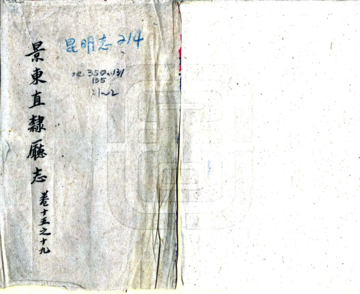 景東直隸廳志
卷十五之十九
昆明志 214
:1~2